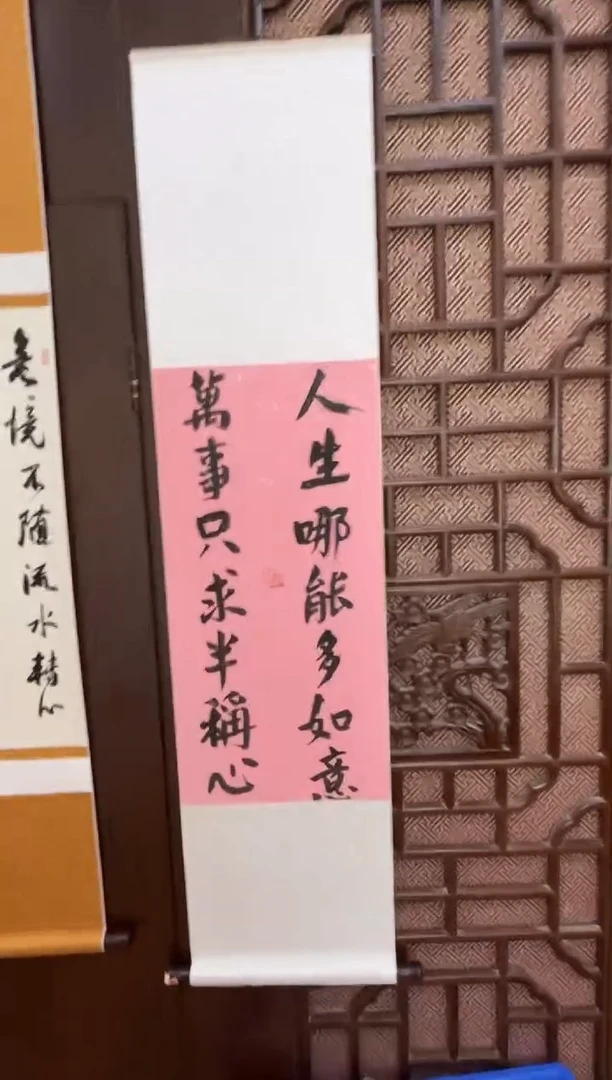 人生哪能多如意
萬事只求半稱心
境不随流水轉心